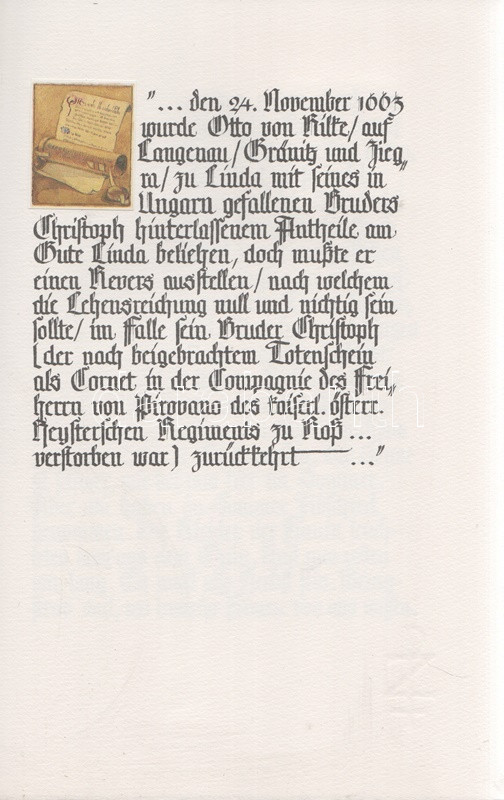 "... den 24. November 1663
wurde Otto von Rilke/ auf
Langenau/ Gränitz und Zieg„
ra/ zu Linda mit seines in
Ungarn gefallenen Bruders
Christoph hinterlassenem Antheile am
Gute Linda beliehen, doch mußte er
einen Revers ausstellen/ nach welchem
die Lehensreichung null und nichtig sein
sollte/ im Falle sein Bruder Christoph
(der nach beigebrachtem Totenschein
als Cornet in der Compagnie des Frei„
herrn von Pirovano des kaiserl. österr.
Heysterschen Regiments zu Roß ...
verstorben war) zurückkehrt ..."